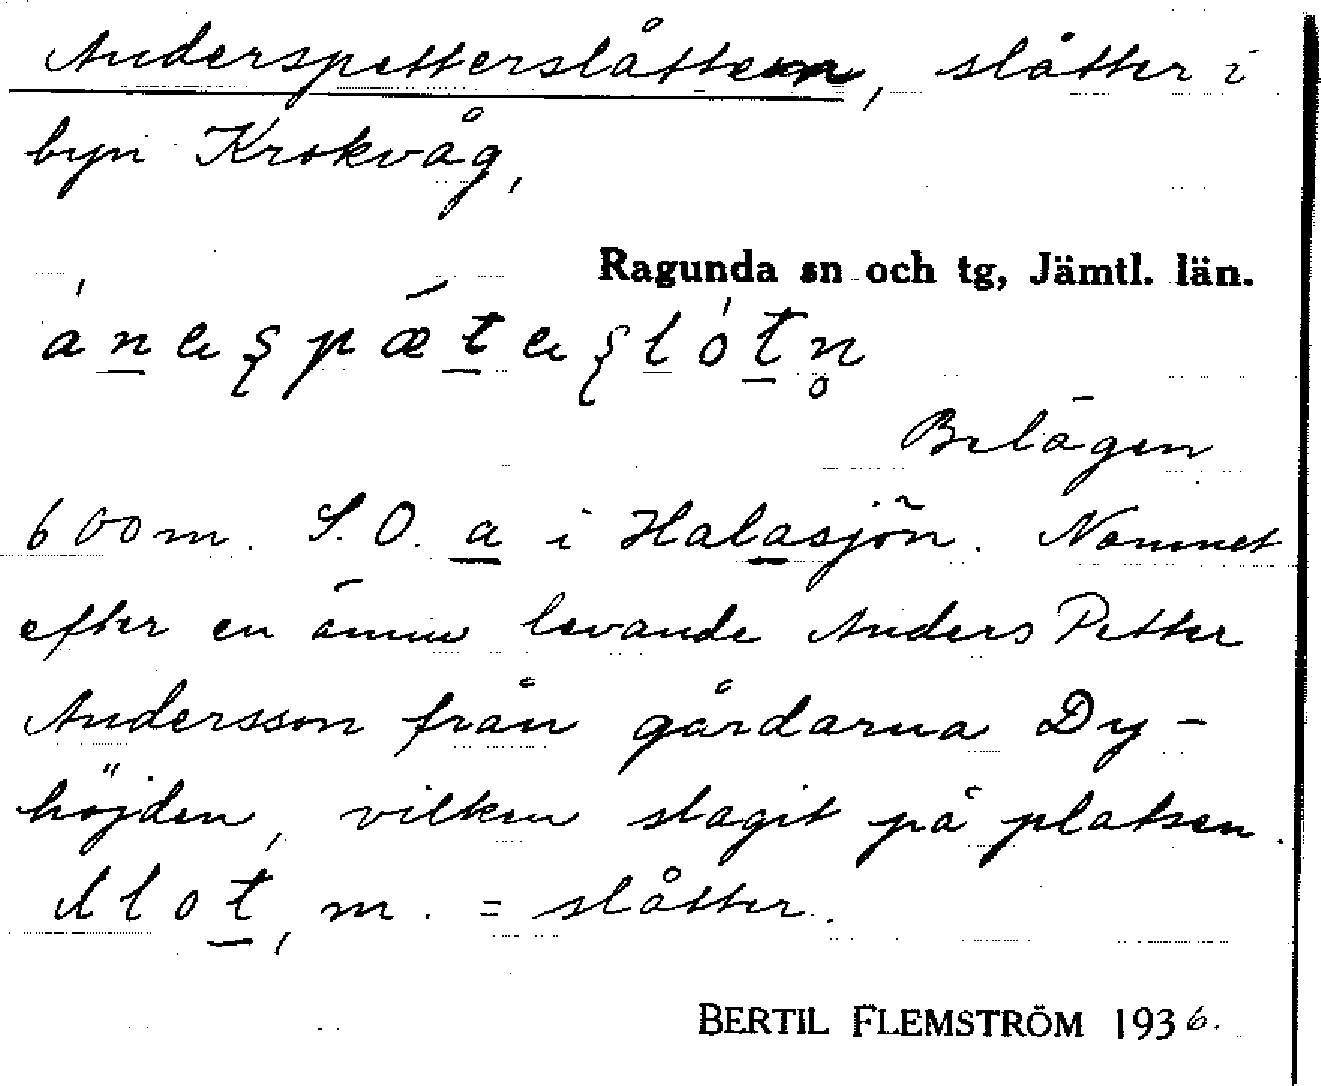 Anderspetterslåtten, slåtter i
byn Krokvåg,
Ragunda sn och tg, Jämtl. län.
Belägen
600 m. S.O. a i Halasjön. Namnet
efter en ännu levande Anders Petter
Andersson från gårdarna Dy-
höjden, vilken slagit på platsen.
m. = slåtter.
BERTIL FLEMSTRÖM 1936.